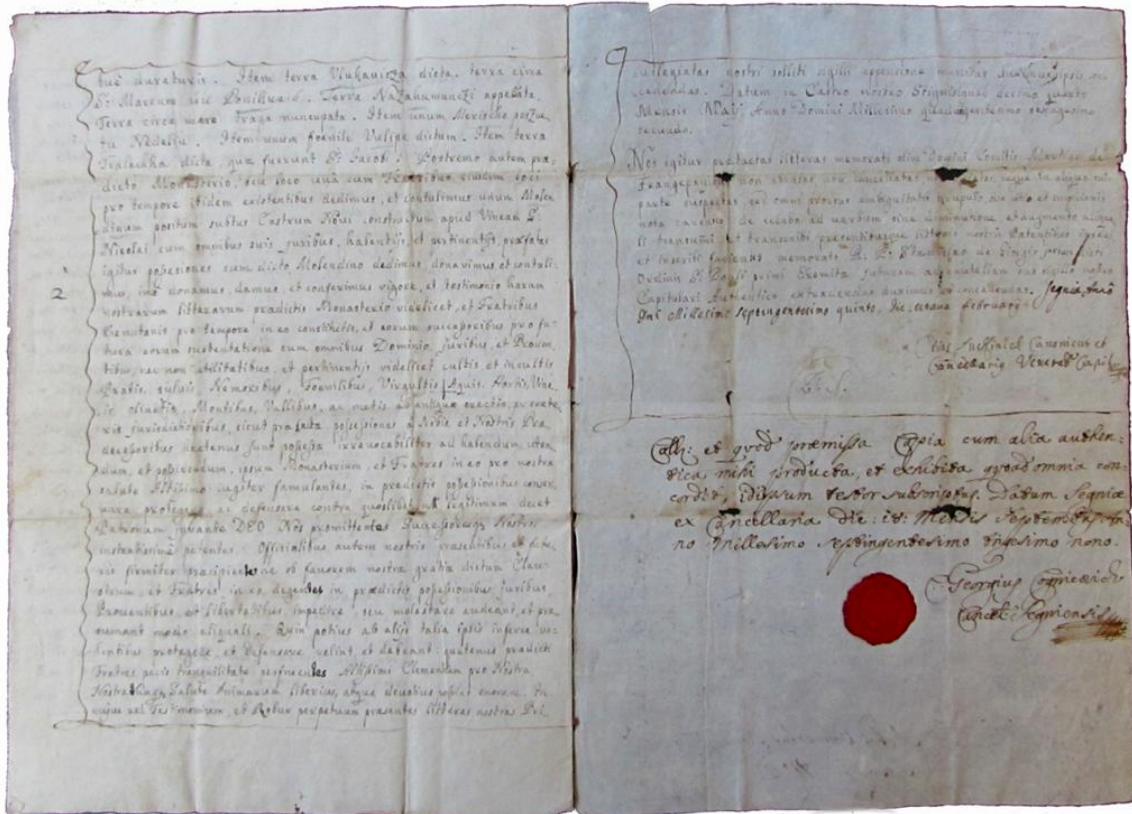 tuè duraturis. Item terra Vlukavizza dicta. terra circa
S: Marcum sive Ponikve 6. Terra Nazahumunczi appellata.
Terra circa mare Draga nuncupata. Item unum Merische positu
in Nedelju. Item unum foenile Valipe dictum. Item terra
dicta, quæ fuerunt S: Jacobi. Postremo autem præ
dicto Monasterio, seu loco unà cum Fratribus ejusdem loci
pro tempore itidem existentibus dedimus, et contulimus unum Molen
dinum positum subtus Castrum Novi constructum apud Vineam S:
Nicolai cum omnibus suis juribus, habentijs, et pertinentijs, præfatas
igitur possesiones cum dicto Molendino dedimus, donavimus et contuli-
mus, imò donamus, damus, et conferimus vigore, et testimonio harum
2
nostrarum litterarum prædictis Monasterio videlicet, et Fratribus
Eremitanis pro tempore in eo constitutis, et eorum succesoribus pro fu-
tura eorum sustentatione cum omnibus Dominio, juribus, et Proven-
tibus, nec non utilitatibus, et pertinentijs videlicet cultis et incultis
Pratis, Sylvis, Nemoribus, Foenilibus, Virgultis, Aquis, Hortis, Vine-
is Olivetis, Montibus, Vallibus, ac metis ab antiquo erectis, pr cæte-
ris jurisdictionibus, sicut præfata possesiones a Nobis et Nostris Præ
decesoribus hactenus sunt possesa irrevocabiliter ad habendum, uten
dum, et possidendum, ipsum Monasterium, et Fratres in eo pro nostra
salute Altissimo jugiter famulantes, in prædictis possesionibus conser
vare protegere ac defensare contra quoslibet ut legitimum decet
Patronum juvante DEO Nos promittentes Successoresq Nostros
petentes. Officialibus autem nostris præsentibus et futu-
ris firmiter præcipientes ne ob favorem nostra gratia dictum Claus-
trum, et Fratres in eo degentes in prædictis possesionibus juribus
Proventibus, et libertatibus, impetire, seu molestare audeant, et præ
sumant modo aliquali. Quin potius ab alijs talia ipsis inferre vo-
lentibus protegere, et defensare velint, et debeant: quatenus prædicti
Fratres pacis tranquilitate perfruentes Altissimi Clementiam pro Nostra
Nostrorumq Salute Animarum liberius, atque devotius exorare. In
cujus rei Testimonium, et Robur perpetuum præsentes litteras nostras Pri
vilegiatas nostri soliti sigilli appensione munitas duximus ipsis con
cedendas. Datum in Castro nostro decimo quarto
Mensis Maij Anno Domini Millesimo quadringentesimo sexagesimo
secundo.
Nos igitur prætactas litteras memorati olim Domini Comitis Martini de
Frangepanibus non abrasas, non cancellatas nec in aliqua sui
parte suspectas, sed omni prorsus ambiguitatis scrupulo, ac vitio et suspicionis
nota carentes de verbo ad verbum sine diminutione et augmento aliqua
li transumi et transcribi præsentibusque litteris nostris Patentibus
et inscribi facientes memorato R. P.
Ordinis S: Pauli primi Eremitæ futuram ad cautellam sub sigillo nostro
Capitulari Authentico extradendas duximus et concedendas. Segniæ, Anno
Dni Millesimo septingentesimo quinto, die octava Februarij
Canonicus et
Cancellarig Venerab: Capli
L. S.
Coll: et quod præmissa Copia cum alia authen-
tica mihi producta, et exhibita quoad omnia con-
cordet, idipsum testor subscriptus. Datum Segniæ
ex Cancellaria die: 18: Mensis Septembris An-
no Millesimo septingentesimo trigesimo nono.
Georgius
Cancel: Segniensis